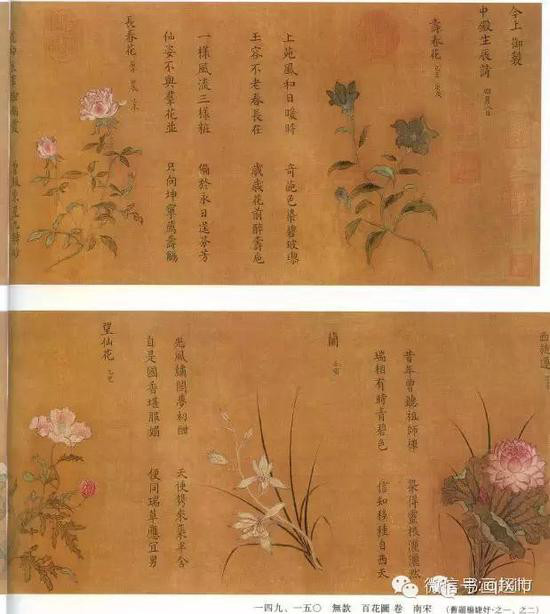 今上御製
中殿生辰詩 四月八日
壽春花
上苑風和日暖時 奇葩色染碧玻瓈
玉容不老春長在 歲歲花前醉壽巵
長春花
一樣風流三樣粧 偏於永日送芬芳
仙姿不與羣花並 只向坤寧薦壽觴
西施蓮
昔年曾聽祖師機 栽得靈根
瑞相有時青碧色 信知移種自西天
蘭
光風繡閣夢初酣 天使携來葉半含
自是國香堪服媚 便同瑞草應宜男
望仙花
一四九、一五〇 無款 百花圖 卷 南宋 (舊題楊婕妤·之一、之二)
微信号